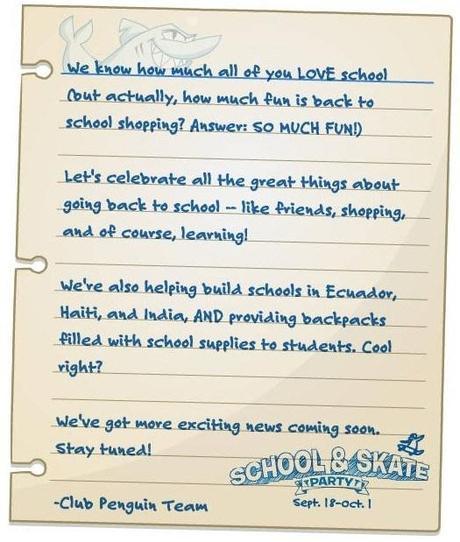 We know how much all of you LOVE school
(but actually, how much fun is back to
school shopping? Answer: SO MUCH FUN!)
Let's celebrate all the great things about
going back to school – like friends, shopping,
and of course, learning!
We're also helping build schools in Ecuador,
Haiti, and India, AND providing backpacks
filled with school supplies to students. Cool
right?
We've got more exciting news coming soon.
Stay tuned!
SCHOOL & SKATE
PARTY
Sept. 18-Oct. 1
-Club Penguin Team